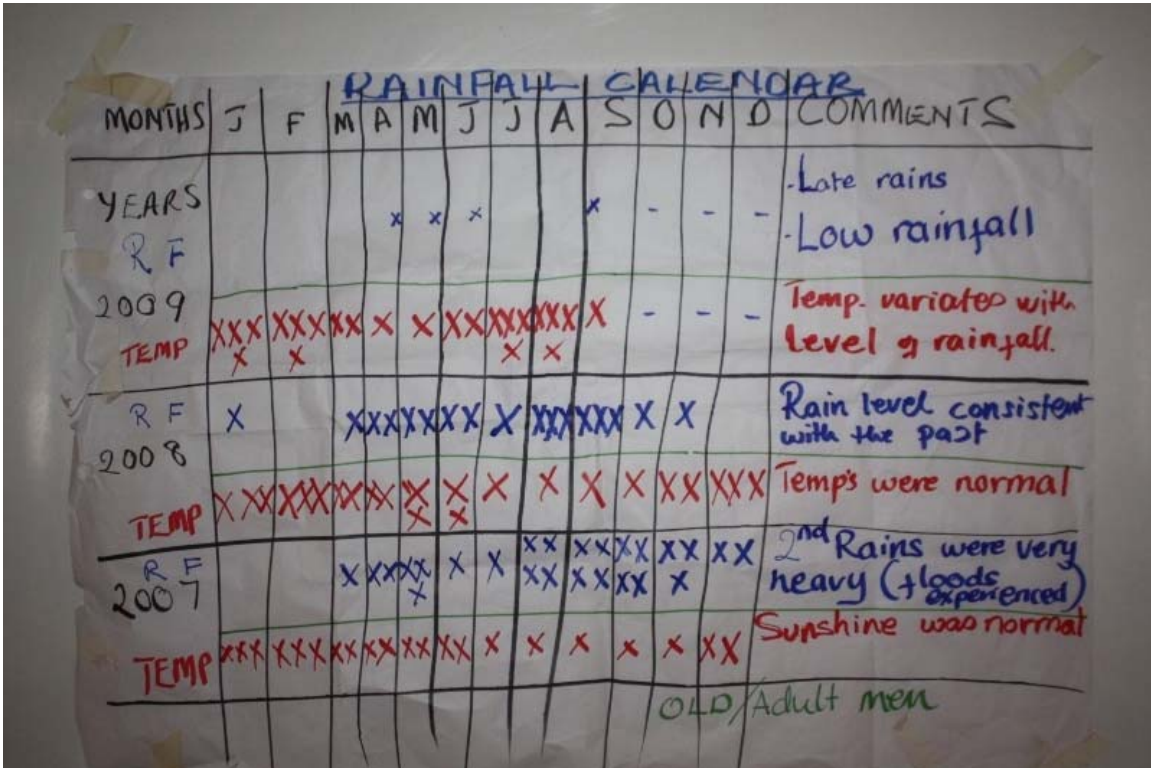 RAINFALL CALENDAR
MONTHS J F M A M J J A S O N D COMMENTS
YEARS
R F x x x x - - -
·Late rains
·Low rainfall
2009
TEMP XXX XXX XX X X XX XXX XXX X - - -
X X X X
Temp. variates with
level of rainfall.
R F X X XX XX XX X XXX XXX X X
2008
Rain level consistent
with the past
TEMP X XX XXX XX XX X X X X X X XX XXX
X X
Temp's were normal
R F X XX XX X X XX XX XX XX XX
2007 X XX XX XX X
2nd Rains were very
heavy (floods
experienced)
TEMP XXX XXX XX XX XX XX X X X X X XX
Sunshine was normal
OLD/Adult men